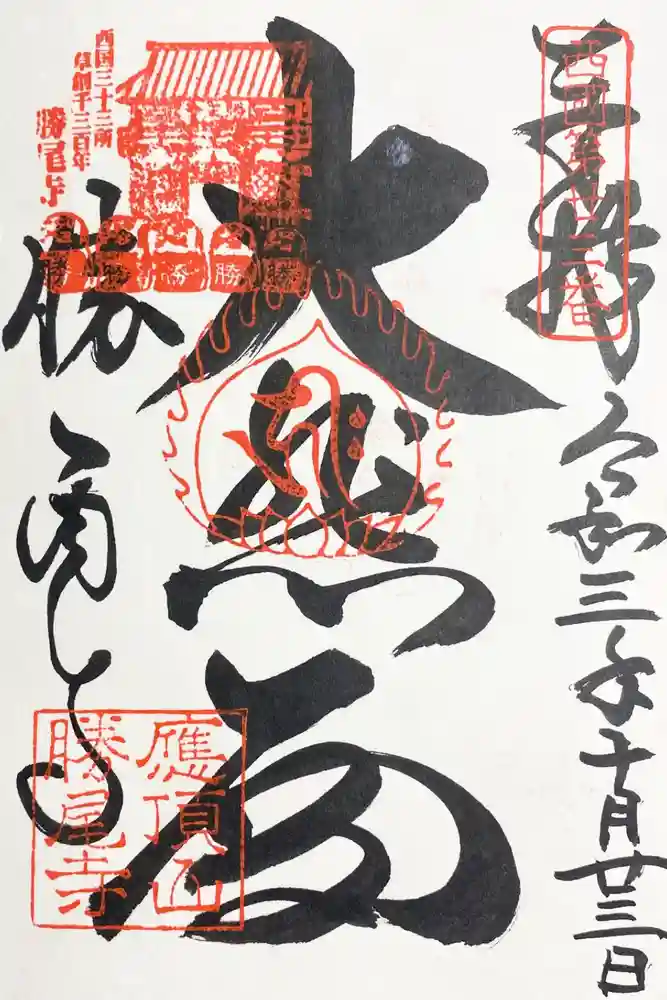 奉拝
西國第廿三番
令和三年十月廿三日
大悲
西国三十三所
草創千三百年
勝尾寺
勝 勝 勝 勝 勝
勝尾寺
應頂山
勝尾寺